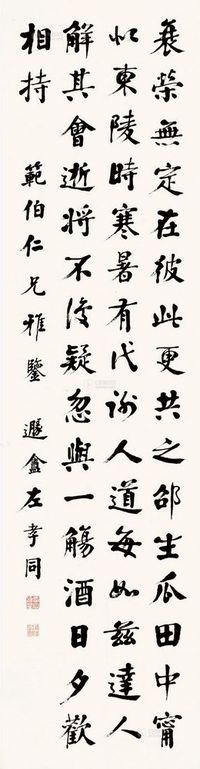 衰榮無定在彼此更共之邵生瓜田中甯
似東陵時寒暑有代謝人道每如茲達人
解其會逝將不復疑忽與一觴酒日夕歡
相持
範伯仁兄雅鑒 遯盦左孝同